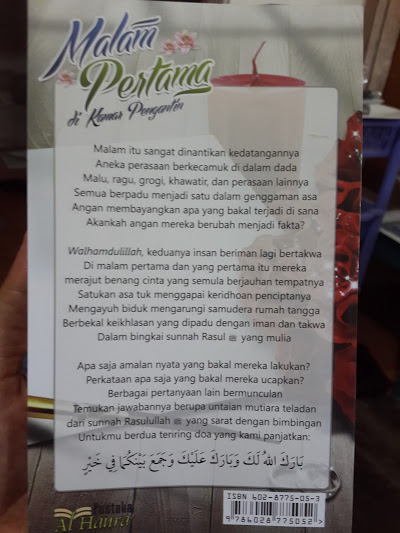 Malam
Pertama
di Kamar Pengantin
Malam itu sangat dinantikan kedatangannya
Aneka perasaan berkecamuk di dalam dada
Malu, ragu, grogi, khawatir, dan perasaan lainnya
Semua berpadu menjadi satu dalam genggaman asa
Angan membayangkan apa yang bakal terjadi di sana
Akankah angan mereka berubah menjadi fakta?
Walhamdulillah, keduanya insan beriman lagi bertakwa
Di malam pertama dan yang pertama itu mereka
merajut benang cinta yang semula berjauhan tempatnya
Satukan asa tuk menggapai keridhoan penciptanya
Mengayuh biduk mengarungi samudera rumah tangga
Berbekal keikhlasan yang dipadu dengan iman dan takwa
Dalam bingkai sunnah Rasul ﷺ yang mulia
Apa saja amalan nyata yang bakal mereka lakukan?
Perkataan apa saja yang bakal mereka ucapkan?
Berbagai pertanyaan lain bermunculan
Temukan jawabannya berupa untaian mutiara teladan
dari sunnah Rasulullah ﷺ yang sarat dengan bimbingan
Untukmu berdua teriring doa yang kami panjatkan:
بَارَكَ اللهُ لَكَ وَبَارَكَ عَلَيْكَ وَجَمَعَ بَيْنَكُمَا فِي خَيْرٍ
Pustaka
Al Haura
ISBN 602-8775-05-3
9 786028 775052